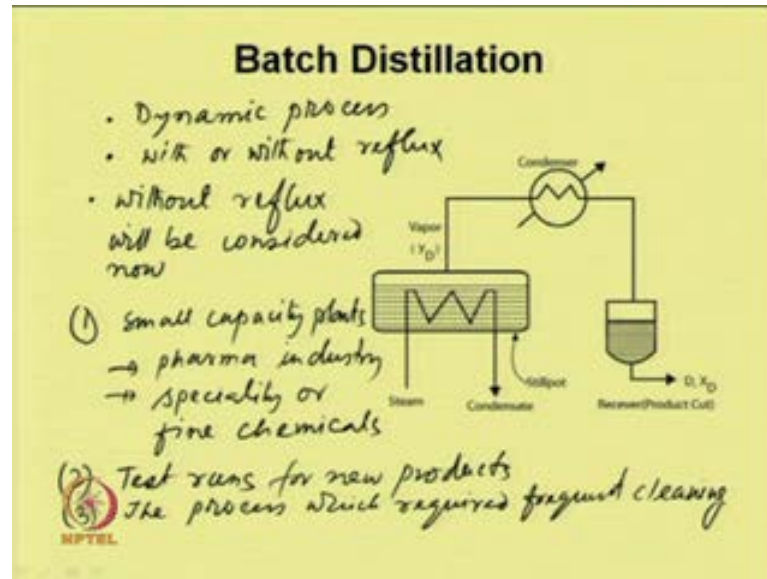 Batch Distillation
• Dynamic process
• with or without reflux
• without reflux
will be considered
now
(1) small capacity plants
→ pharma industry
→ speciality or
fine chemicals
(2) Test runs for new products
(3) The process which required frequent cleaning
Condenser
Vapor
(YD)
Stillpot
Steam
Condensate
D, XD
Recever(Product Cut)
NPTEL